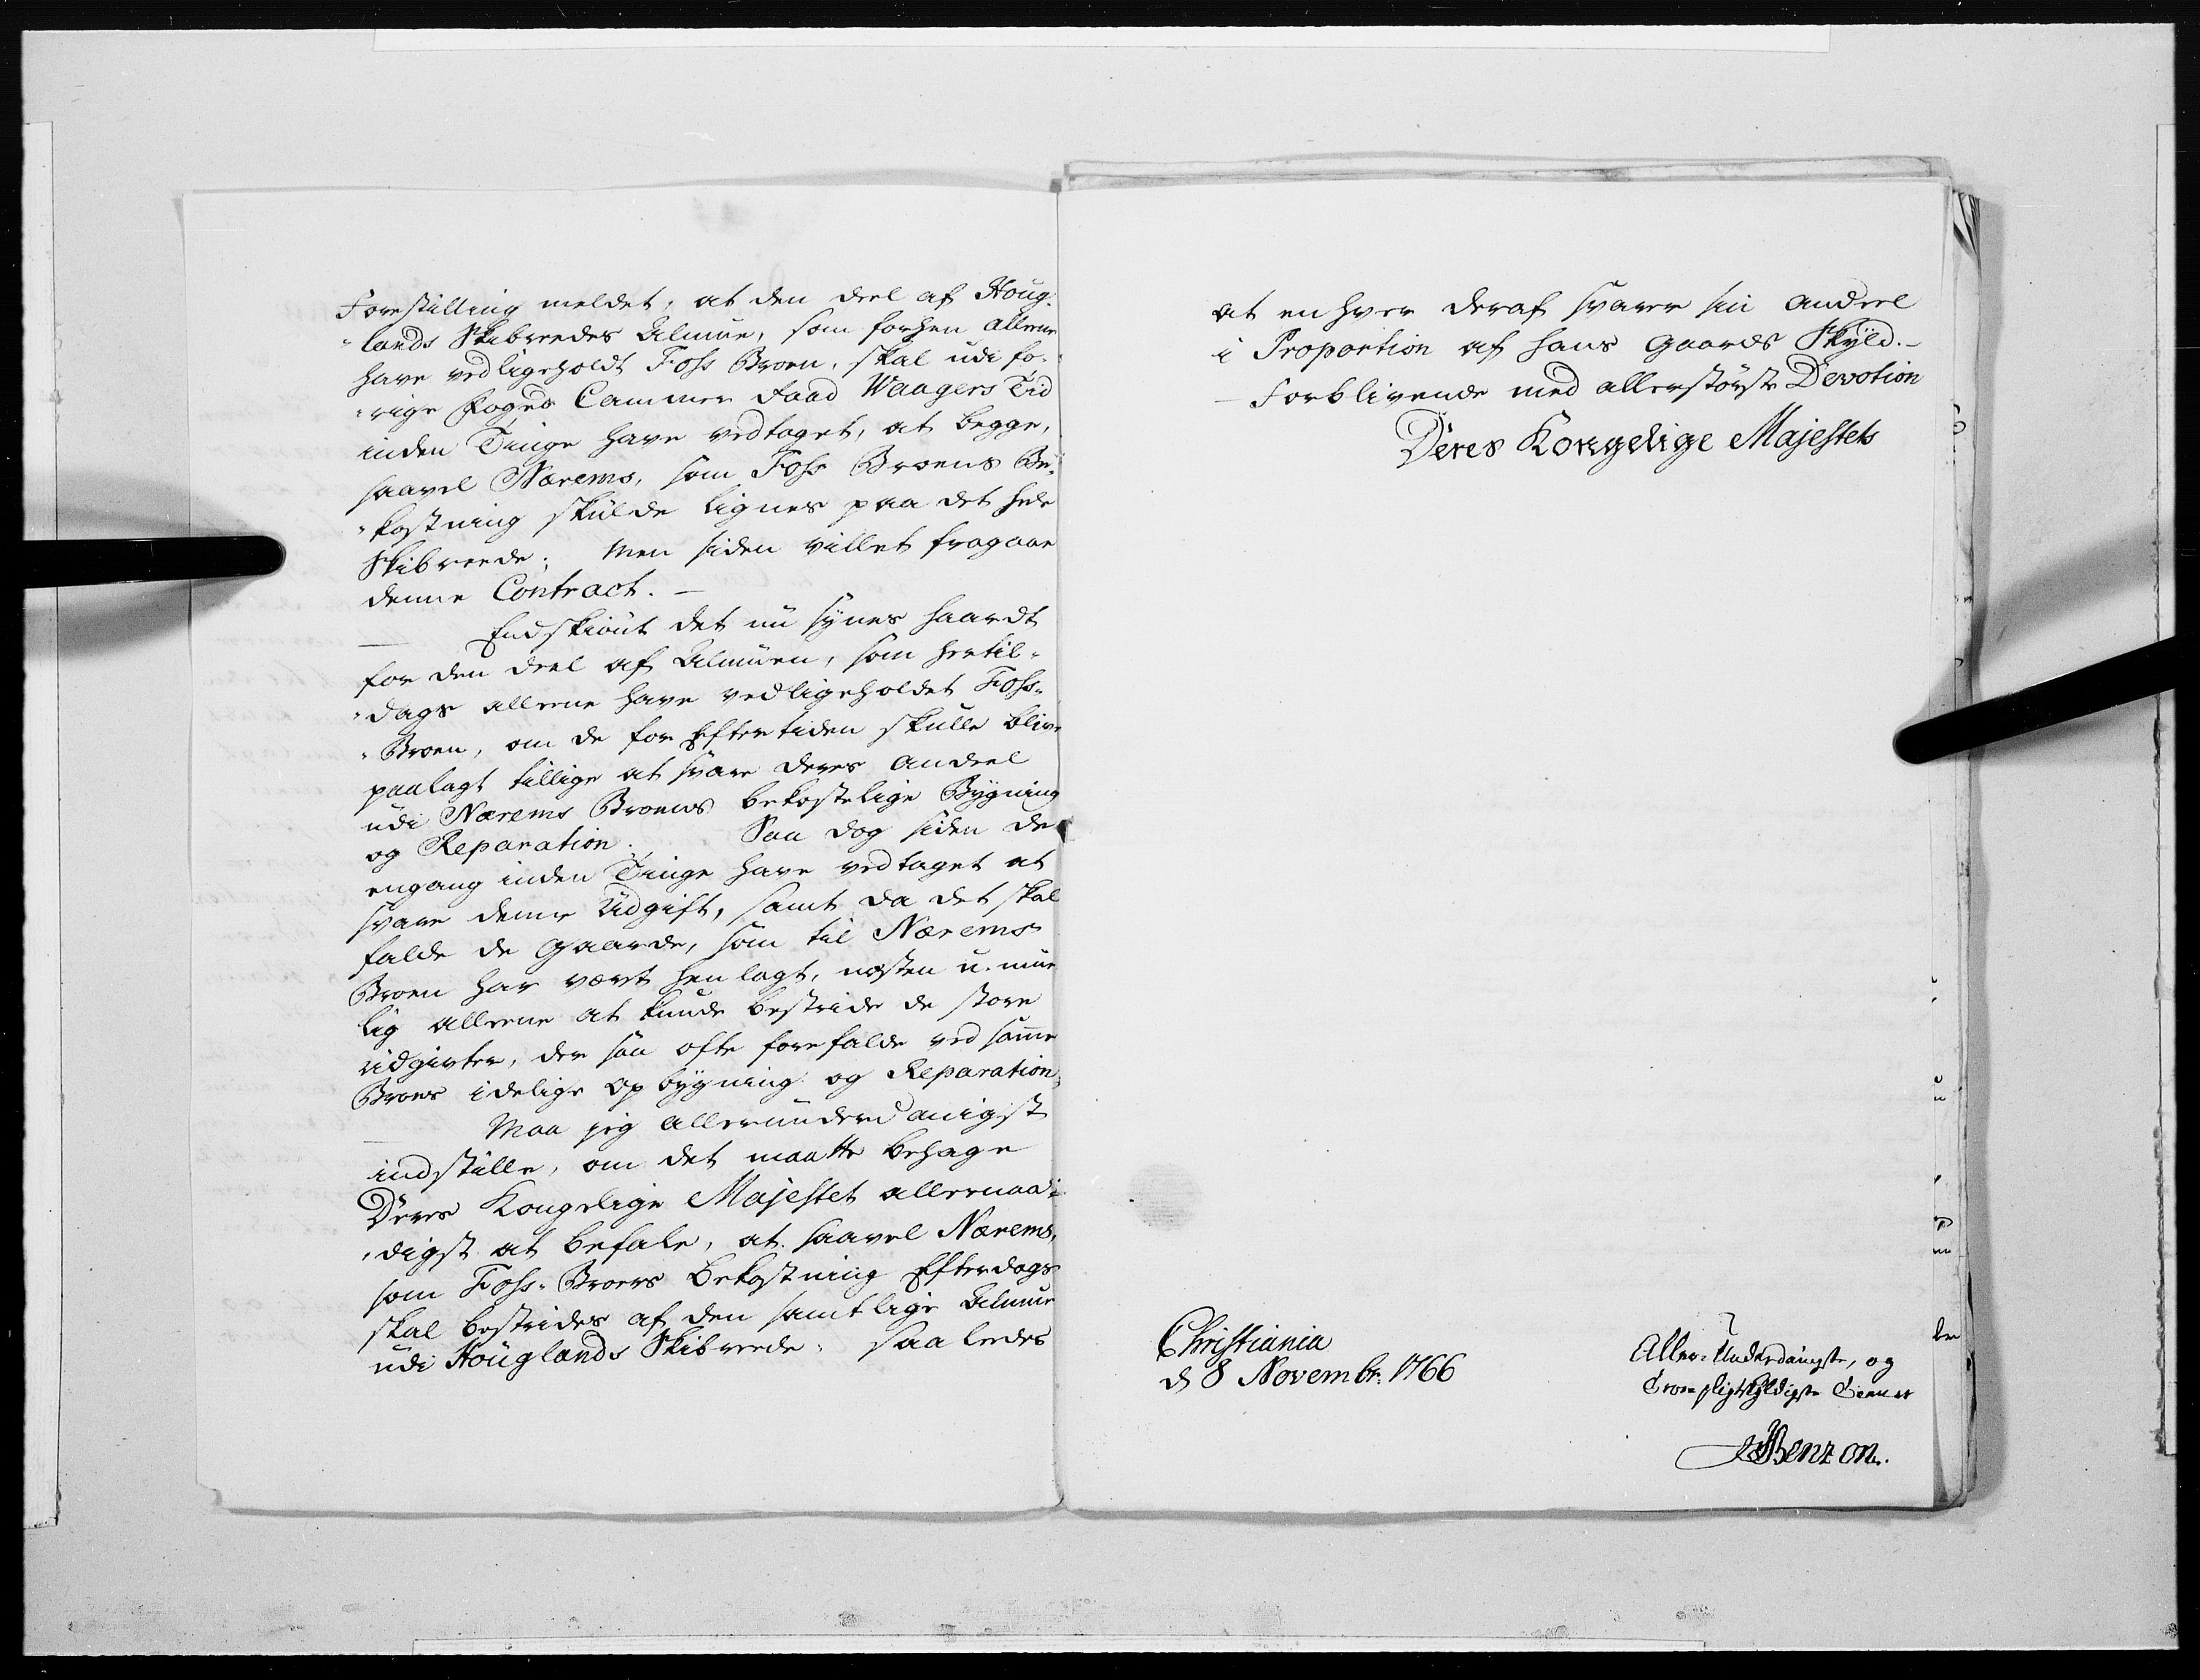 Forestilling meldet, at den deel af Houg-
-lands Skibredes Almue, som forhen alleene
have vedligeholdt Foss Broen, skal udi fo-
-rige Foged Cammer Raad Waagers Tid
inden Tinge have vedtaget, at begge,
saavel Nærems, som Foss Broens Be-
-kostning skulde lignes paa det hele
Skibreede; men siden villet fragaae
denne Contract. —
— Endskiönt det nu synes haardt
for den deel af Almuen, som hertil-
-dags alleene have vedligeholdet Foss-
-Broen, om de for Eftertiden skulle blive
paalagt tillige at svare deres andeel
udi Nærems Broens bekostelige Bygning
og Reparation. Saa dog siden de
engang inden Tinge have vedtaget at
svare denne Udgift, samt da det skal
falde de Gaarde, som til Nærems
Broen har vært henlagt, næsten u-mue
lig alleene at kunde bestride de store
Udgivter, der saa ofte forefalde ved samme
Broes idelige Opbygning og Reparation;
— Maa jeg allerunderdanigst
indstille, om det maatte behage
Deres Kongelige Majestet allernaa-
-digst at befale, at saavel Nærems,
som Foss-Broers Bekostning Efterdags
skal bestrides af den samtlige Almue
udi Houglands Skibreede, saaledes
at enhver deraf svarer sin andeel
i Proportion af hans Gaards Skyld. -
- Forblivende med allerstørste Devotion
Deres Kongelige Majestets
Christiania
d 8 Novembr: 1766
Aller-Underdanigste, og
Troe-pligtskyldigste Tiener
JBenzon.